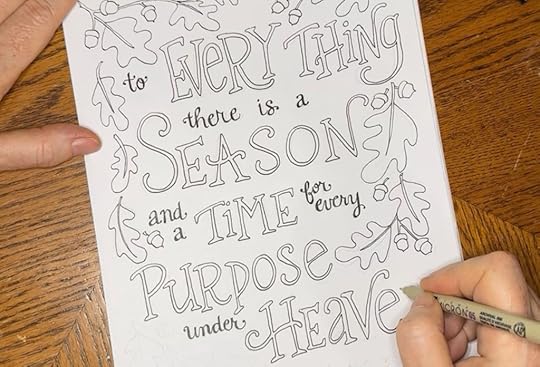 to EVERY THING
there is a
SEASON
and a TIME for every
PURPOSE
under HEAVE